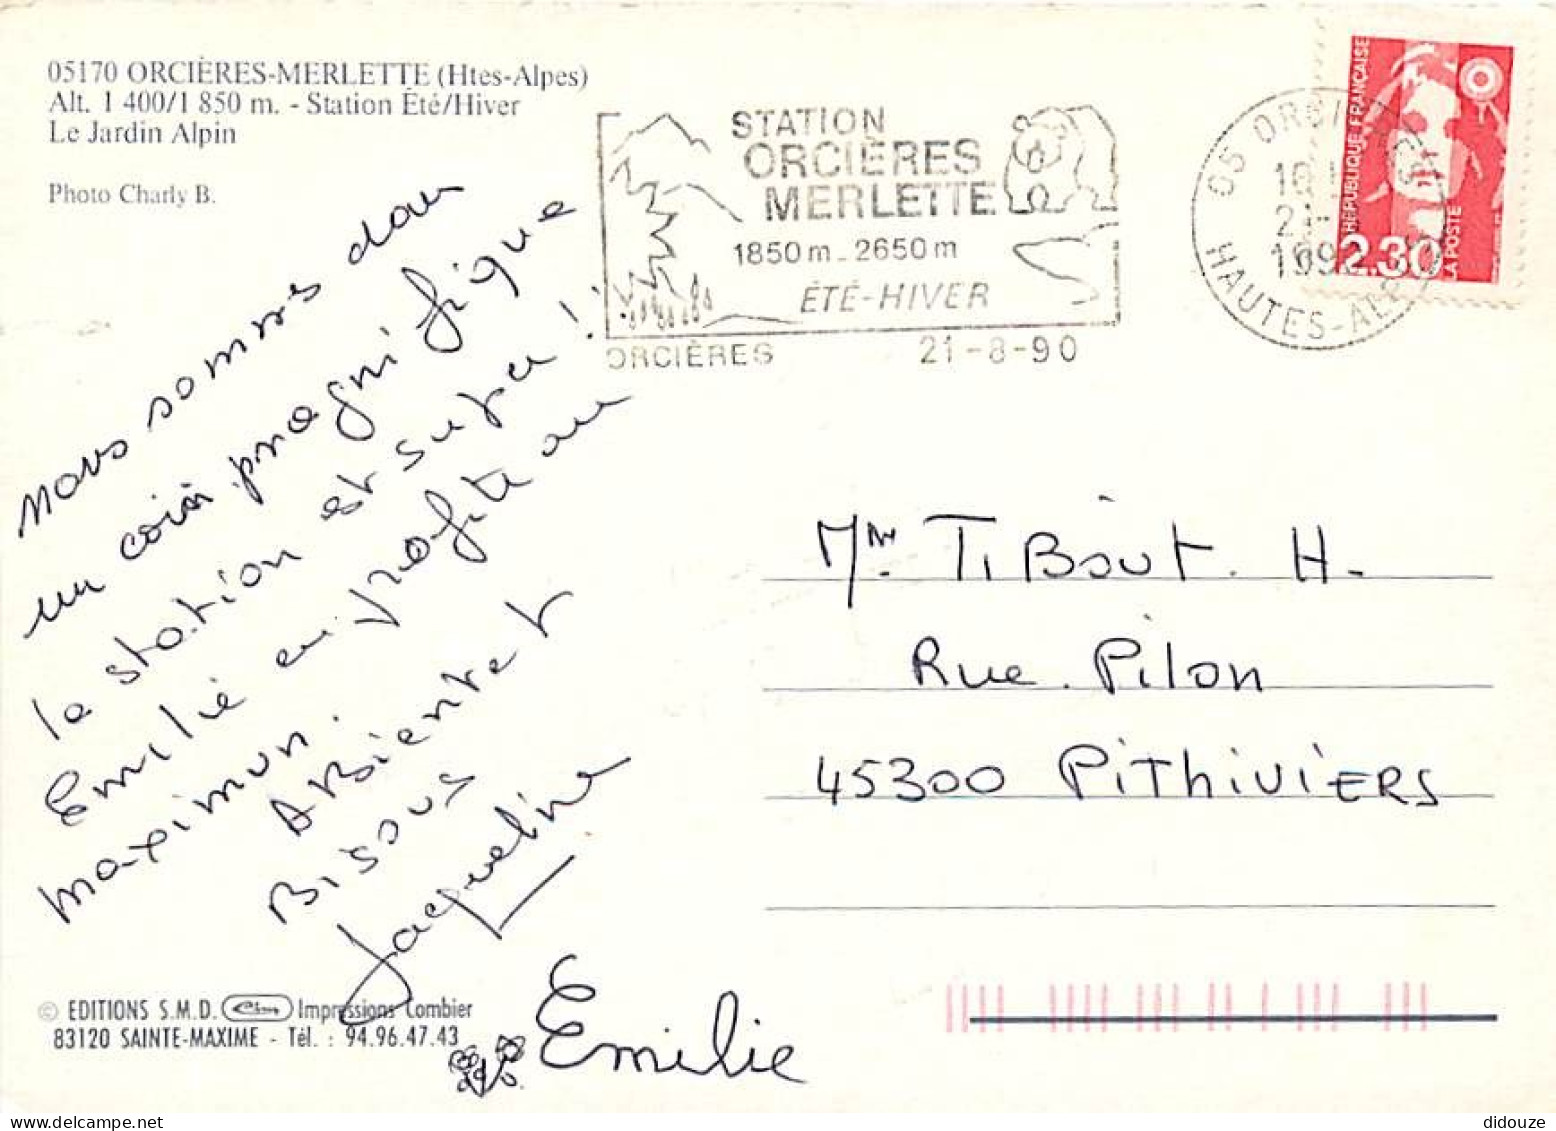 05170 ORCIÈRES-MERLETTE (Htes-Alpes)
Alt. 1 400/1 850 m. - Station Été/Hiver
Le Jardin Alpin
Photo Charly B.
STATION
ORCIÈRES
MERLETTE
1850 m - 2650 m
ÉTÉ-HIVER
ORCIÈRES 21-8-90
05 ORCIÈRES
HAUTES-ALPES
RÉPUBLIQUE FRANÇAISE
2.30
LA POSTE
nous sommes dans
un coin magnifique
la station est super !!
Emilie en profite au
maximum.
A Bientot
Bisous
Jacqueline
Emilie
Mr Tibout. H.
Rue Pilon
45300 PithiviERS
© EDITIONS S.M.D. Cim Impressions Combier
83120 SAINTE-MAXIME - Tél. : 94.96.47.43
didouze